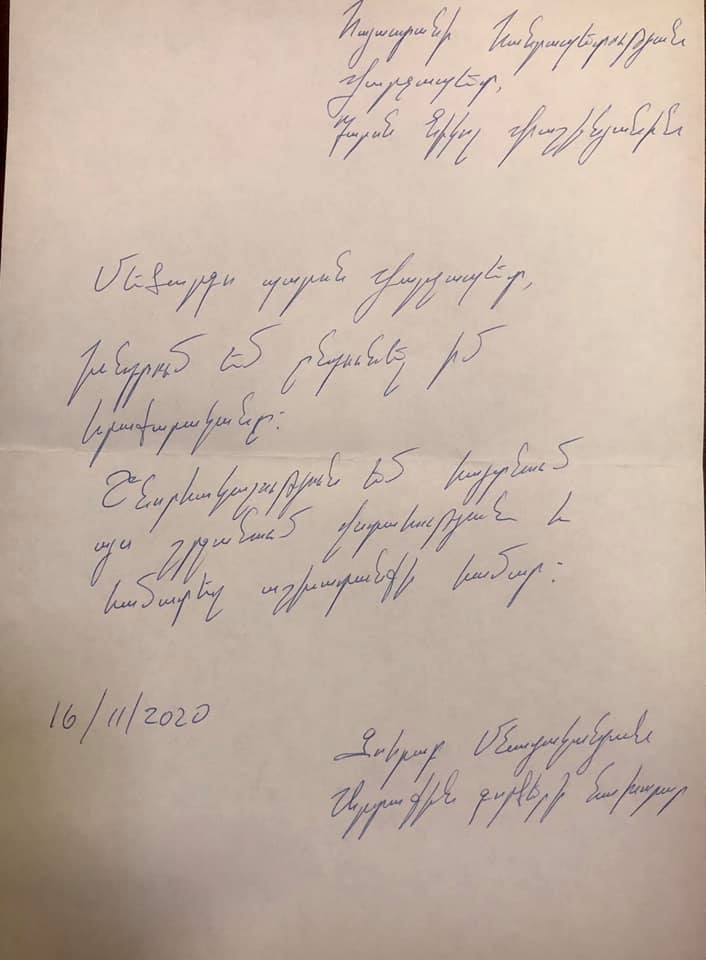 Հայաստանի Հանրապետության
վարչապետ,
Պարոն Նիկոլ Փաշինյանին
Մեծարգո պարոն վարչապետ,
խնդրում եմ ընդունել իմ
հրաժարականը:
Շնորհակալություն եմ հայտնում
այս շրջանում վստահության և
համատեղ աշխատանքի համար:
16/11/2020
Զոհրաբ Մնացականյան
Արտաքին գործերի նախարար